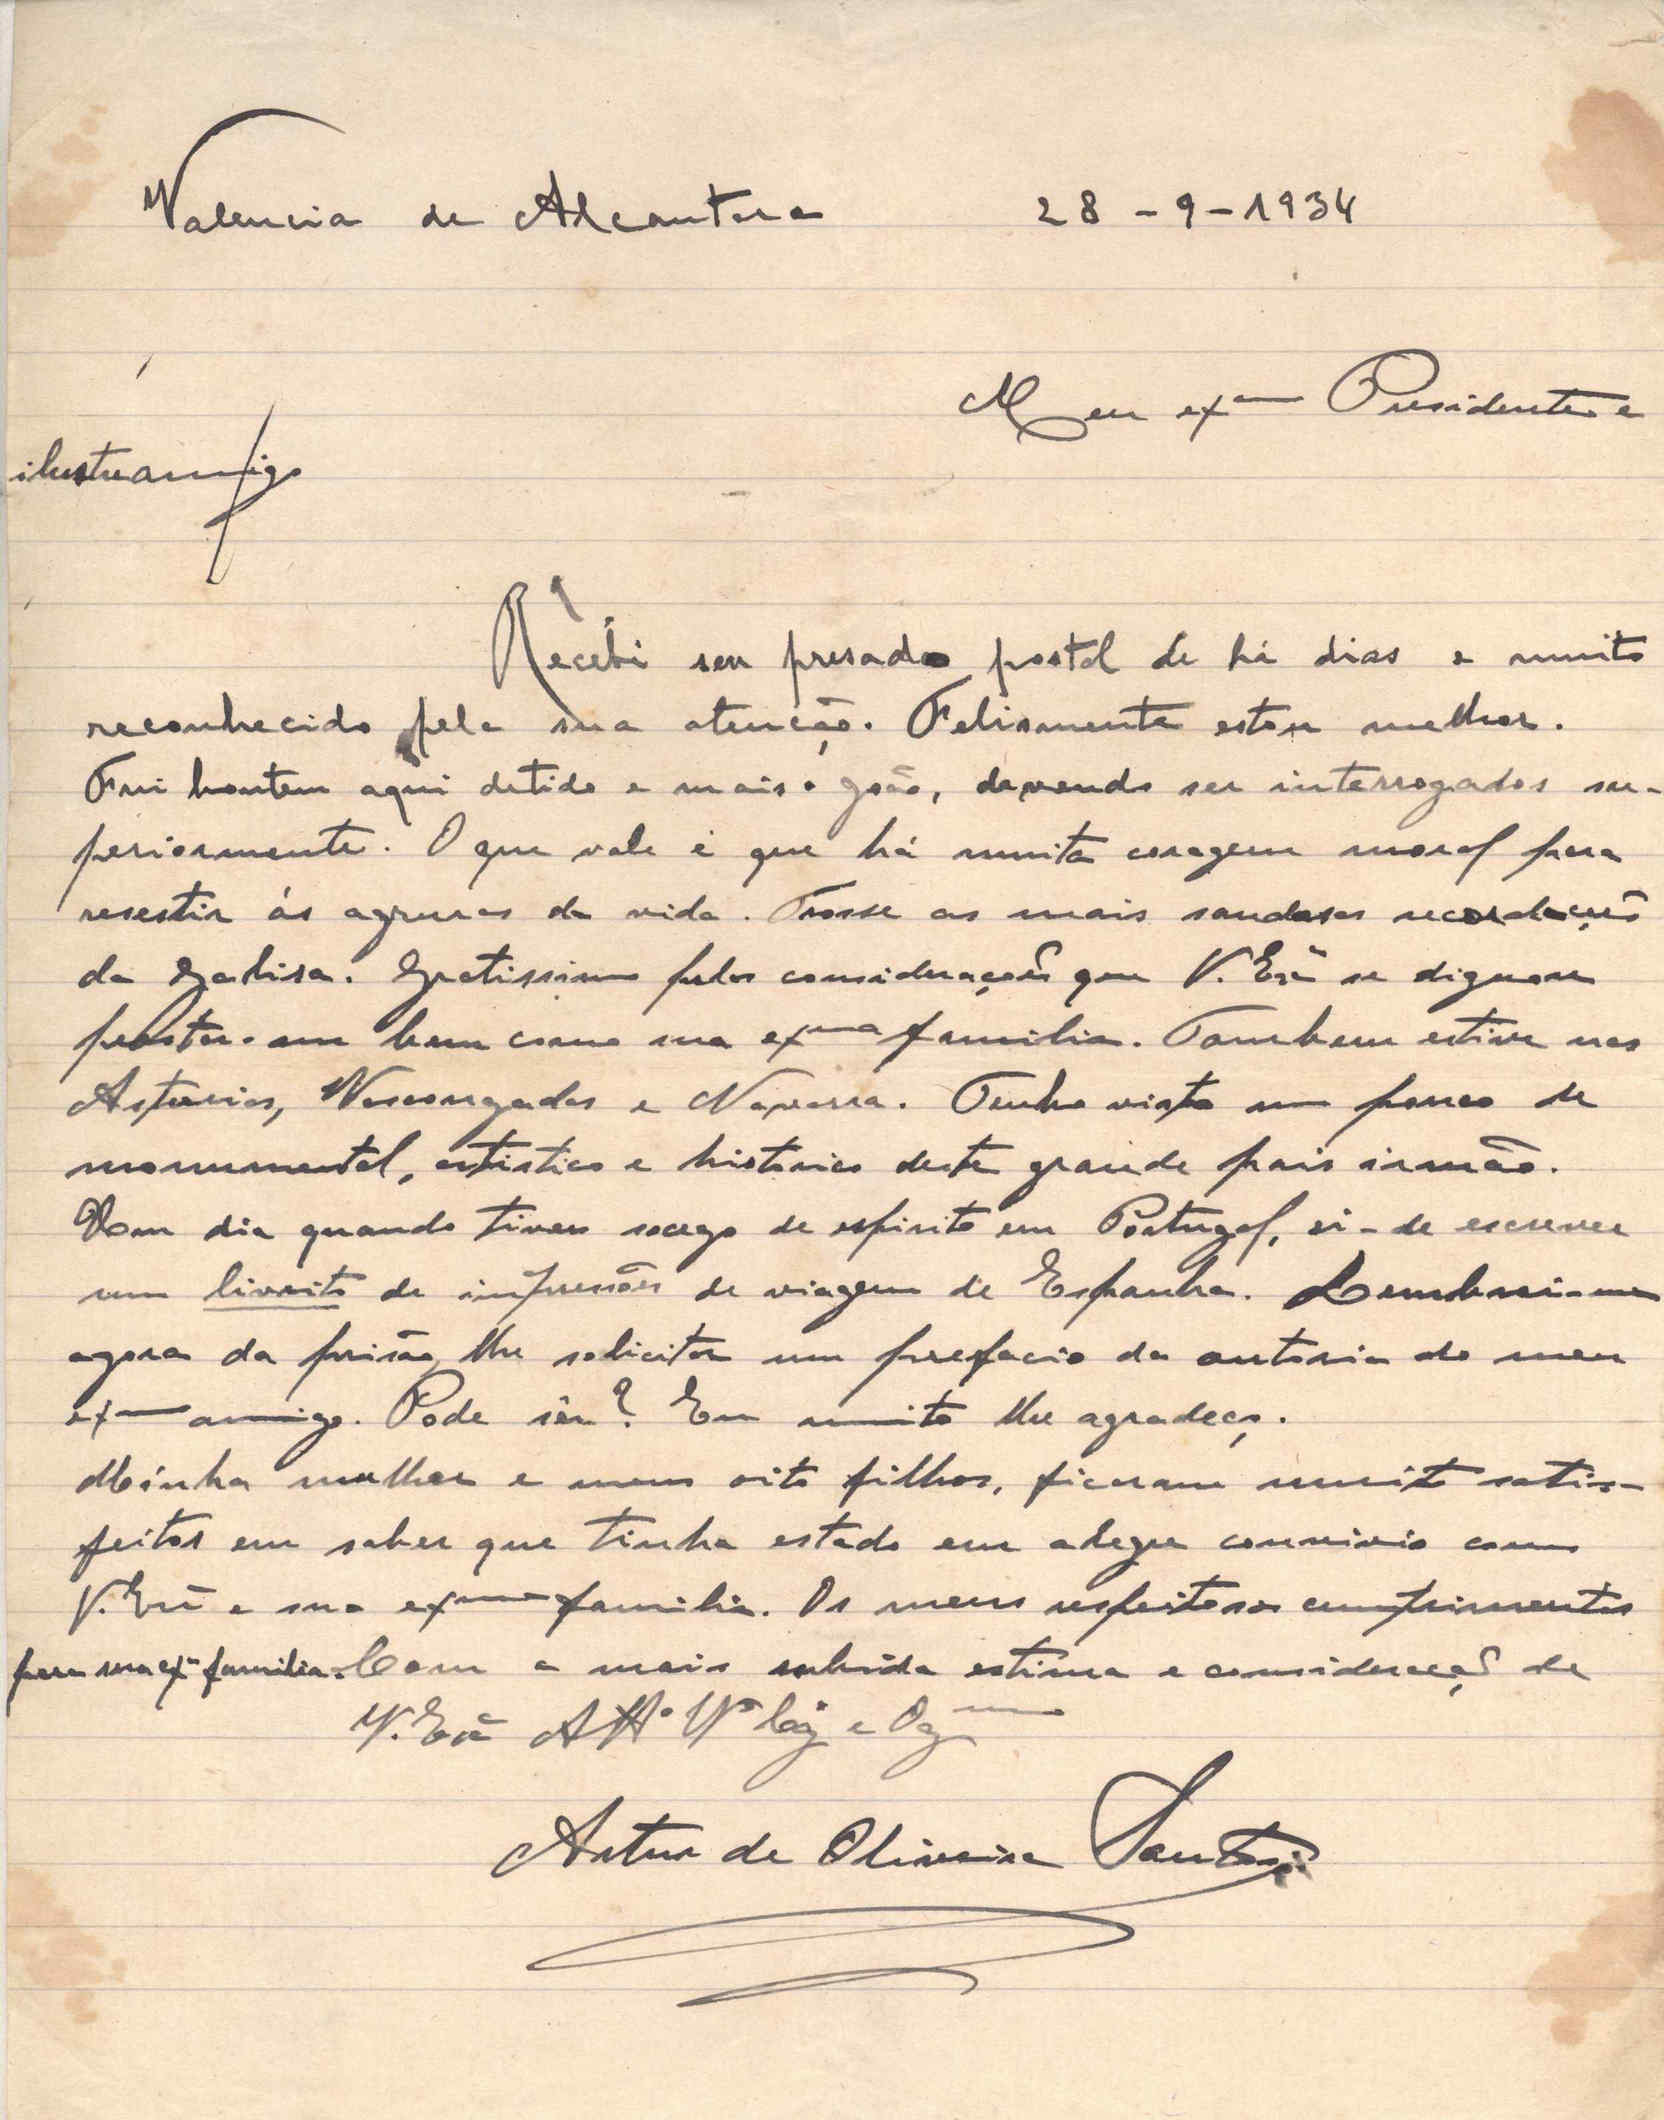 Valencia de Alcantara 28-9-1934
Meu exmo Presidente e
ilustre amigo
Recebi seu presado postal de há dias e muito
reconhecido pela sua atenção. Felismente estou melhor.
Fui hontem aqui detido e mais o João, devendo ser interrogados su-
periormente. O que vale é que há muita coragem moral para
resestir ás agruras da vida. Trosse as mais saudosas recordações
da Galisa. Gratissimo pelas considerações que V. Exª se dignou
prestar-me bem como sua exma familia. Tambem estive nas
Asturias, Vascongadas e Navarra. Tenho visto um pouco de
monumental, artistico e historico deste grande pais irmão.
Um dia quando tiver socego de espirito em Portugal, ei-de escrever
um livrito de impressões de viagem de Espanha. Lembrei-me
agora da prisão, lhe solicitar um prefacio da autoria do meu
exmo amigo. Pode sêr? Eu muito lhe agradeço.
Minha mulher e meus oito filhos, ficaram muito satis-
feitos em saber que tinha estado em alegre convivio com
V. Exª e sua exma familia. Os meus respeitosos cumprimentos
para sua exª familia. Com a mais subida estima e consideração de
V. Exª Attº Vºr e Ogmo
Artur de Oliveira Santos